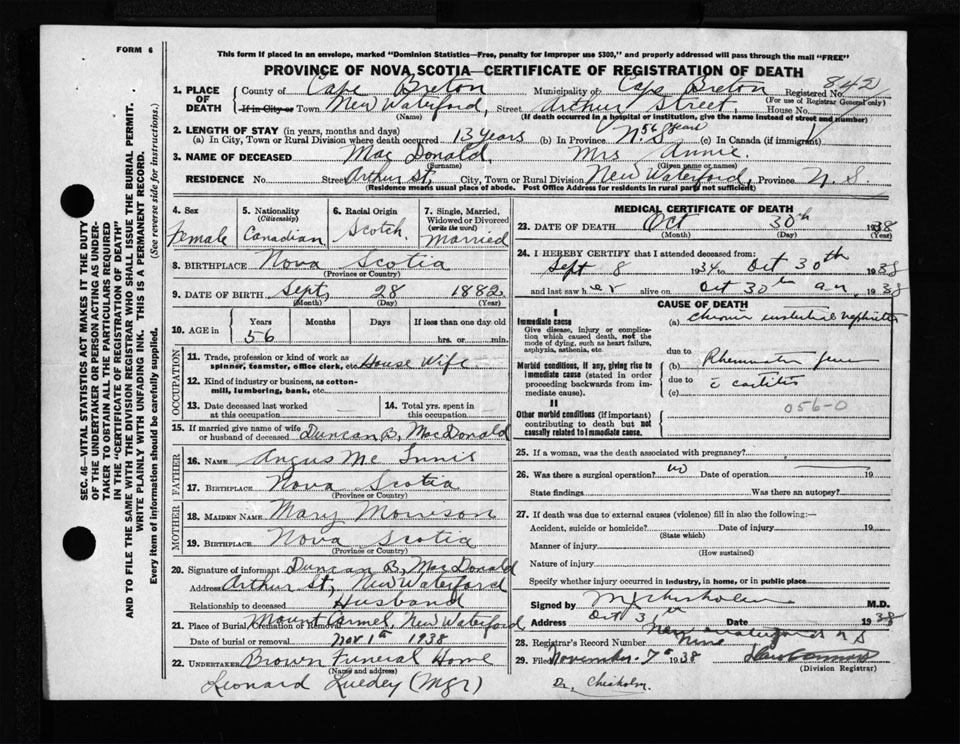 FORM 6
This form if placed in an envelope, marked "Dominion Statistics—Free, penalty for improper use $300," and properly addressed will pass through the mail "FREE"
PROVINCE OF NOVA SCOTIA—CERTIFICATE OF REGISTRATION OF DEATH
842
1. PLACE OF DEATH County of Cape Breton Municipality of Cape Breton Registered No.
(For use of Registrar General only)
If in City or Town New Waterford, Street Arthur Street, House No.
(Name) (If death occurred in a hospital or institution, give the name instead of street and number)
2. LENGTH OF STAY (in years, months and days)
(a) In City, Town or Rural Division where death occurred 13 years (b) In Province N.S. 56 years (c) In Canada (if immigrant)
3. NAME OF DECEASED Mac Donald, Mrs Annie.
(Surname) (Given name or names)
RESIDENCE No. Street Arthur St, City, Town or Rural Division New Waterford, Province N. S.
(Residence means usual place of abode. Post Office Address for residents in rural parts not sufficient)
4. Sex Female
5. Nationality (Citizenship) Canadian
6. Racial Origin Scotch
7. Single, Married, Widowed or Divorced (write the word) Married
8. BIRTHPLACE Nova Scotia
(Province or Country)
9. DATE OF BIRTH Sept, 28 1882
(Month) (Day) (Year)
10. AGE in Years Months Days If less than one day old
56 hrs. or min.
OCCUPATION
11. Trade, profession or kind of work as spinner, teamster, office clerk, etc. House Wife
12. Kind of industry or business, as cotton-mill, lumbering, bank, etc.
13. Date deceased last worked at this occupation
14. Total yrs. spent in this occupation
15. If married give name of wife or husband of deceased Duncan B. MacDonald
FATHER
16. NAME Angus Mc Innis
17. BIRTHPLACE Nova Scotia
(Province or Country)
MOTHER
18. MAIDEN NAME Mary Morrison
19. BIRTHPLACE Nova Scotia
(Province or Country)
20. Signature of informant Duncan B. MacDonald
Address Arthur St, New Waterford
Relationship to deceased Husband
21. Place of Burial, Cremation or Removal Mount Carmel, New Waterford
Date of burial or removal Nov. 1st 1938
22. UNDERTAKER Brown Funeral Home
(Name and address)
Leonard (Mgr)
MEDICAL CERTIFICATE OF DEATH
23. DATE OF DEATH Oct 30th 1938
(Month) (Day) (Year)
24. I HEREBY CERTIFY that I attended deceased from:
Sept 8 1934 to Oct 30th 1938
and last saw her alive on Oct 30th 1938
CAUSE OF DEATH
I
Immediate cause
Give disease, injury or complication which caused death, not the mode of dying, such as heart failure, asphyxia, asthenia, etc.
(a) Chronic interstitial nephritis
due to
Morbid conditions, if any, giving rise to immediate cause (stated in order proceeding backwards from immediate cause).
(b) Rheumatic fever
due to
(c) c carditis
056-0
II
Other morbid conditions (if important) contributing to death but not causally related to immediate cause.
25. If a woman, was the death associated with pregnancy?
26. Was there a surgical operation? no Date of operation 19
State findings Was there an autopsy?
27. If death was due to external causes (violence) fill in also the following:—
Accident, suicide or homicide? Date of injury 19
(State which)
Manner of injury
(How sustained)
Nature of injury
Specify whether injury occurred in industry, in home, or in public place
Signed by M Chisholm M.D.
Address Oct 31st Date 1938
New Waterford N S
28. Registrar's Record Number Nine
29. Filed November 7th 1938
(Division Registrar)
Dr. Chisholm.
SEC. 46—VITAL STATISTICS ACT MAKES IT THE DUTY OF THE UNDERTAKER OR PERSON ACTING AS UNDERTAKER TO OBTAIN ALL THE PARTICULARS REQUIRED IN THE "CERTIFICATE OF REGISTRATION OF DEATH" AND TO FILE THE SAME WITH THE DIVISION REGISTRAR WHO SHALL ISSUE THE BURIAL PERMIT.
WRITE PLAINLY WITH UNFADING INK. THIS IS A PERMANENT RECORD.
Every item of information should be carefully supplied. (See reverse side for instructions.)